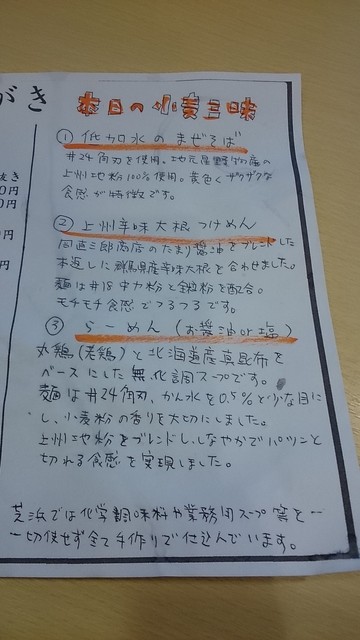 がき
抜き
0円
0円
円
円
本日の小麦三昧
① 低加水のまぜそば
#24角刃を使用。地元
上州地粉100%使用。黄色くザクザクな
食感が特徴です。
② 上州辛味大根つけめん
岡直三郎商店のたまり醤油をブレンドした
本返しに群馬県産辛味大根を合わせました。
麺は#18 中力粉と
モチモチ食感でつるつるです。
③ らーめん (お醤油or塩)
丸鶏(老鶏)と北海道産真昆布を
ベースにした無化調スープです。
麺は#24角刃、かん水を0.5%と少な目に
し、小麦粉の香りを大切にしました。
上州地粉をブレンドし、しなやかでパツンと
切れる食感を実現しました。
芝浜では化学調味料や業務用スープ等を一
一切使せず全て手作りで仕込んでいます。